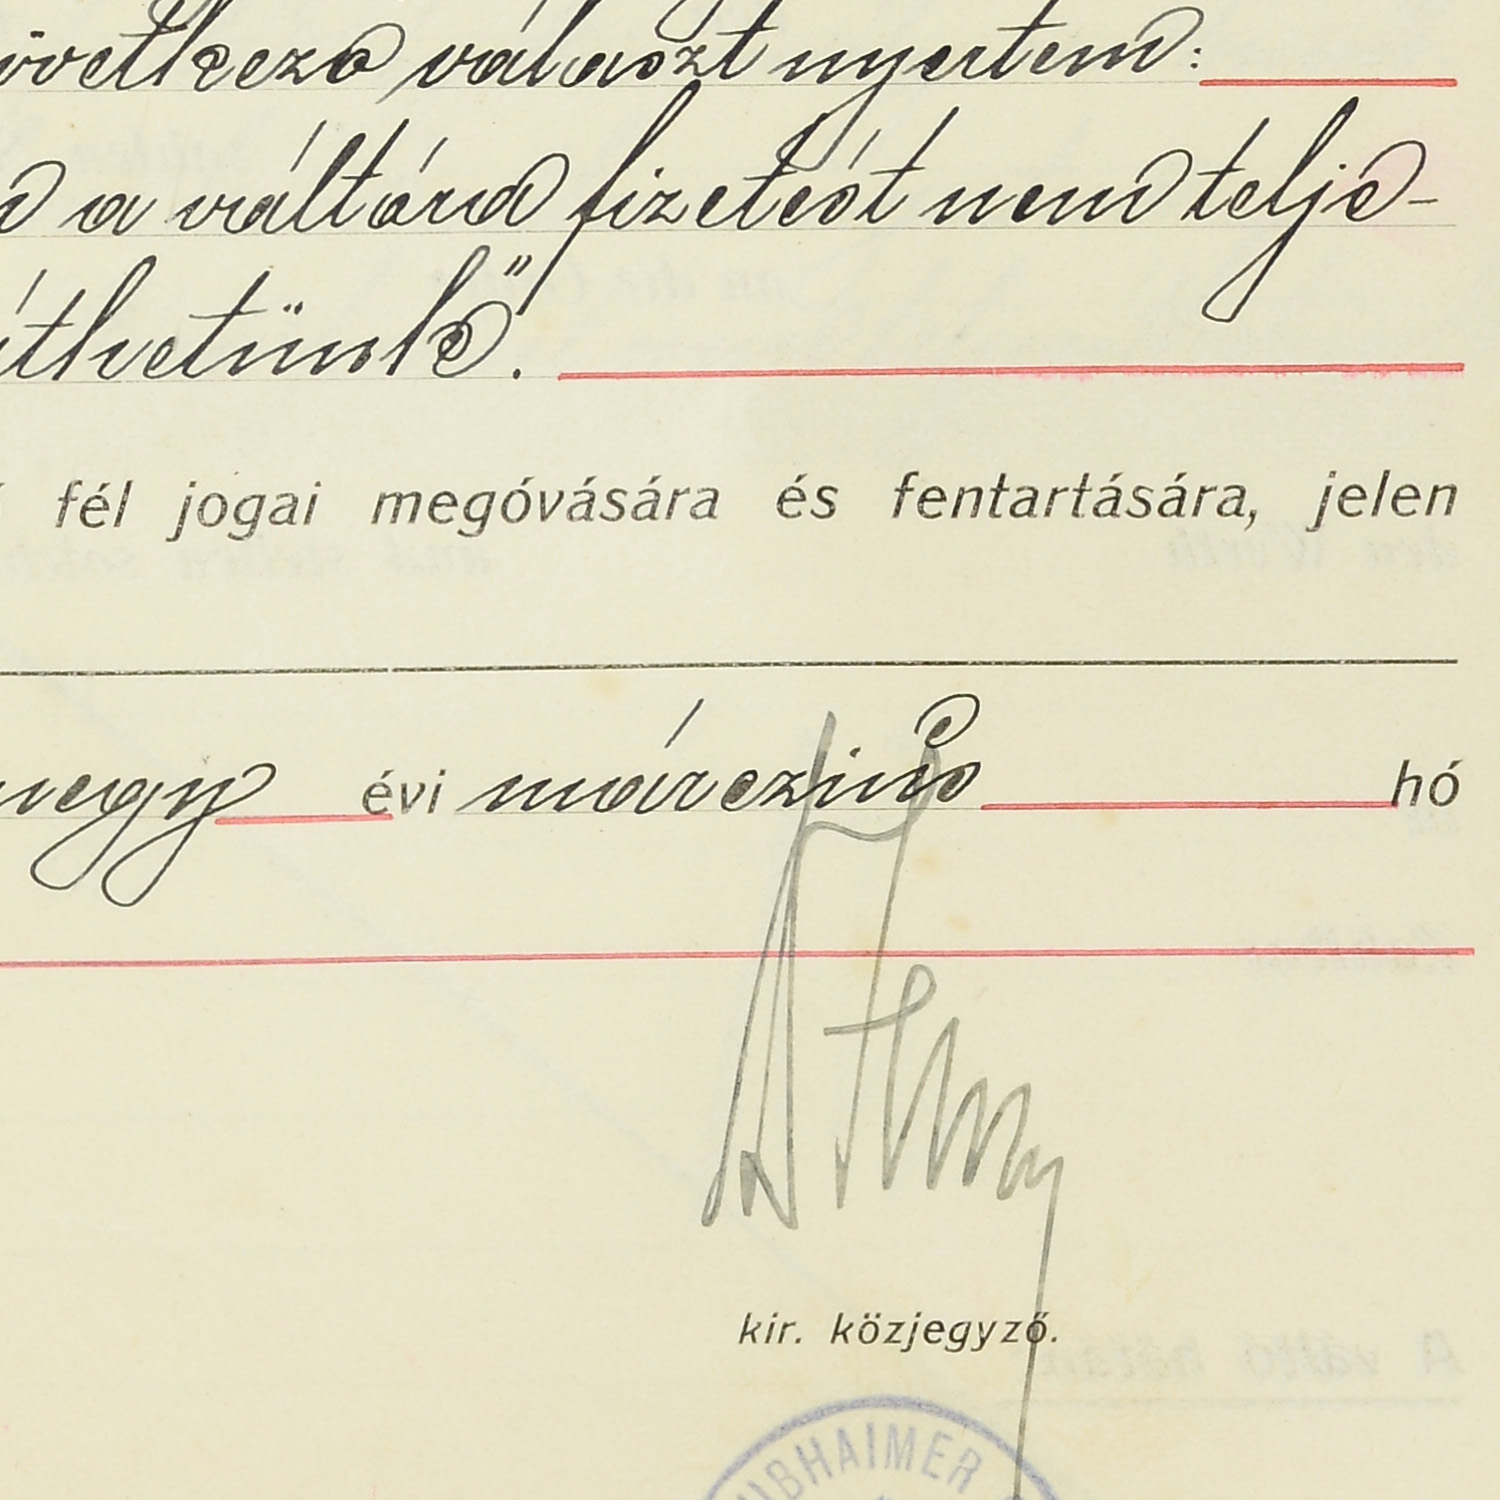 övetkező választ nyertem:
a váltóra fizetést nem telje-
íthetünk".
fél jogai megóvására és fentartására, jelen
négy évi márczius hó
kir. közjegyző.
UBHAIMER